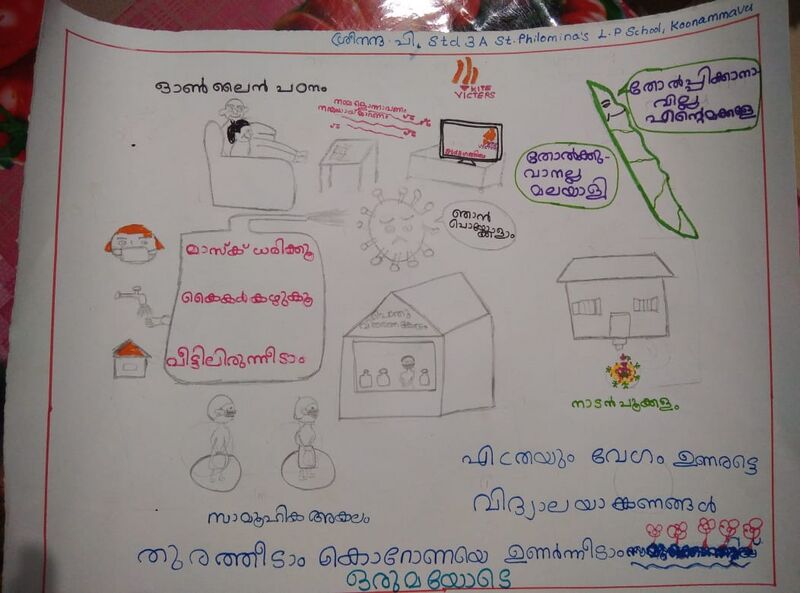 ശ്രീനന്ദ . പി . Std 3 A St. Philomina's L.P School, Koonammavu
ഓൺ ലൈൻ പഠനം
KITE
VICTERS
തോൽപ്പിക്കാനാ-
വില്ല
എന്റെമക്കളെ
തോൽക്കു-
വാനല്ല
മലയാളി
ഞാൻ
പൊയ്ക്കോളാം
മാസ്ക് ധരിക്കൂ
കൈകൾ കഴുകൂ
വീട്ടിലിരുന്നീടാം
പൊതു
നാടൻപൂക്കളം
സാമൂഹിക അകലം
എത്രയും വേഗം ഉണരട്ടെ
വിദ്യാലയാങ്കണങ്ങൾ
തുരത്തീടാം കൊറോണയെ ഉണർന്നീടാം
ഒരുമയോടെ